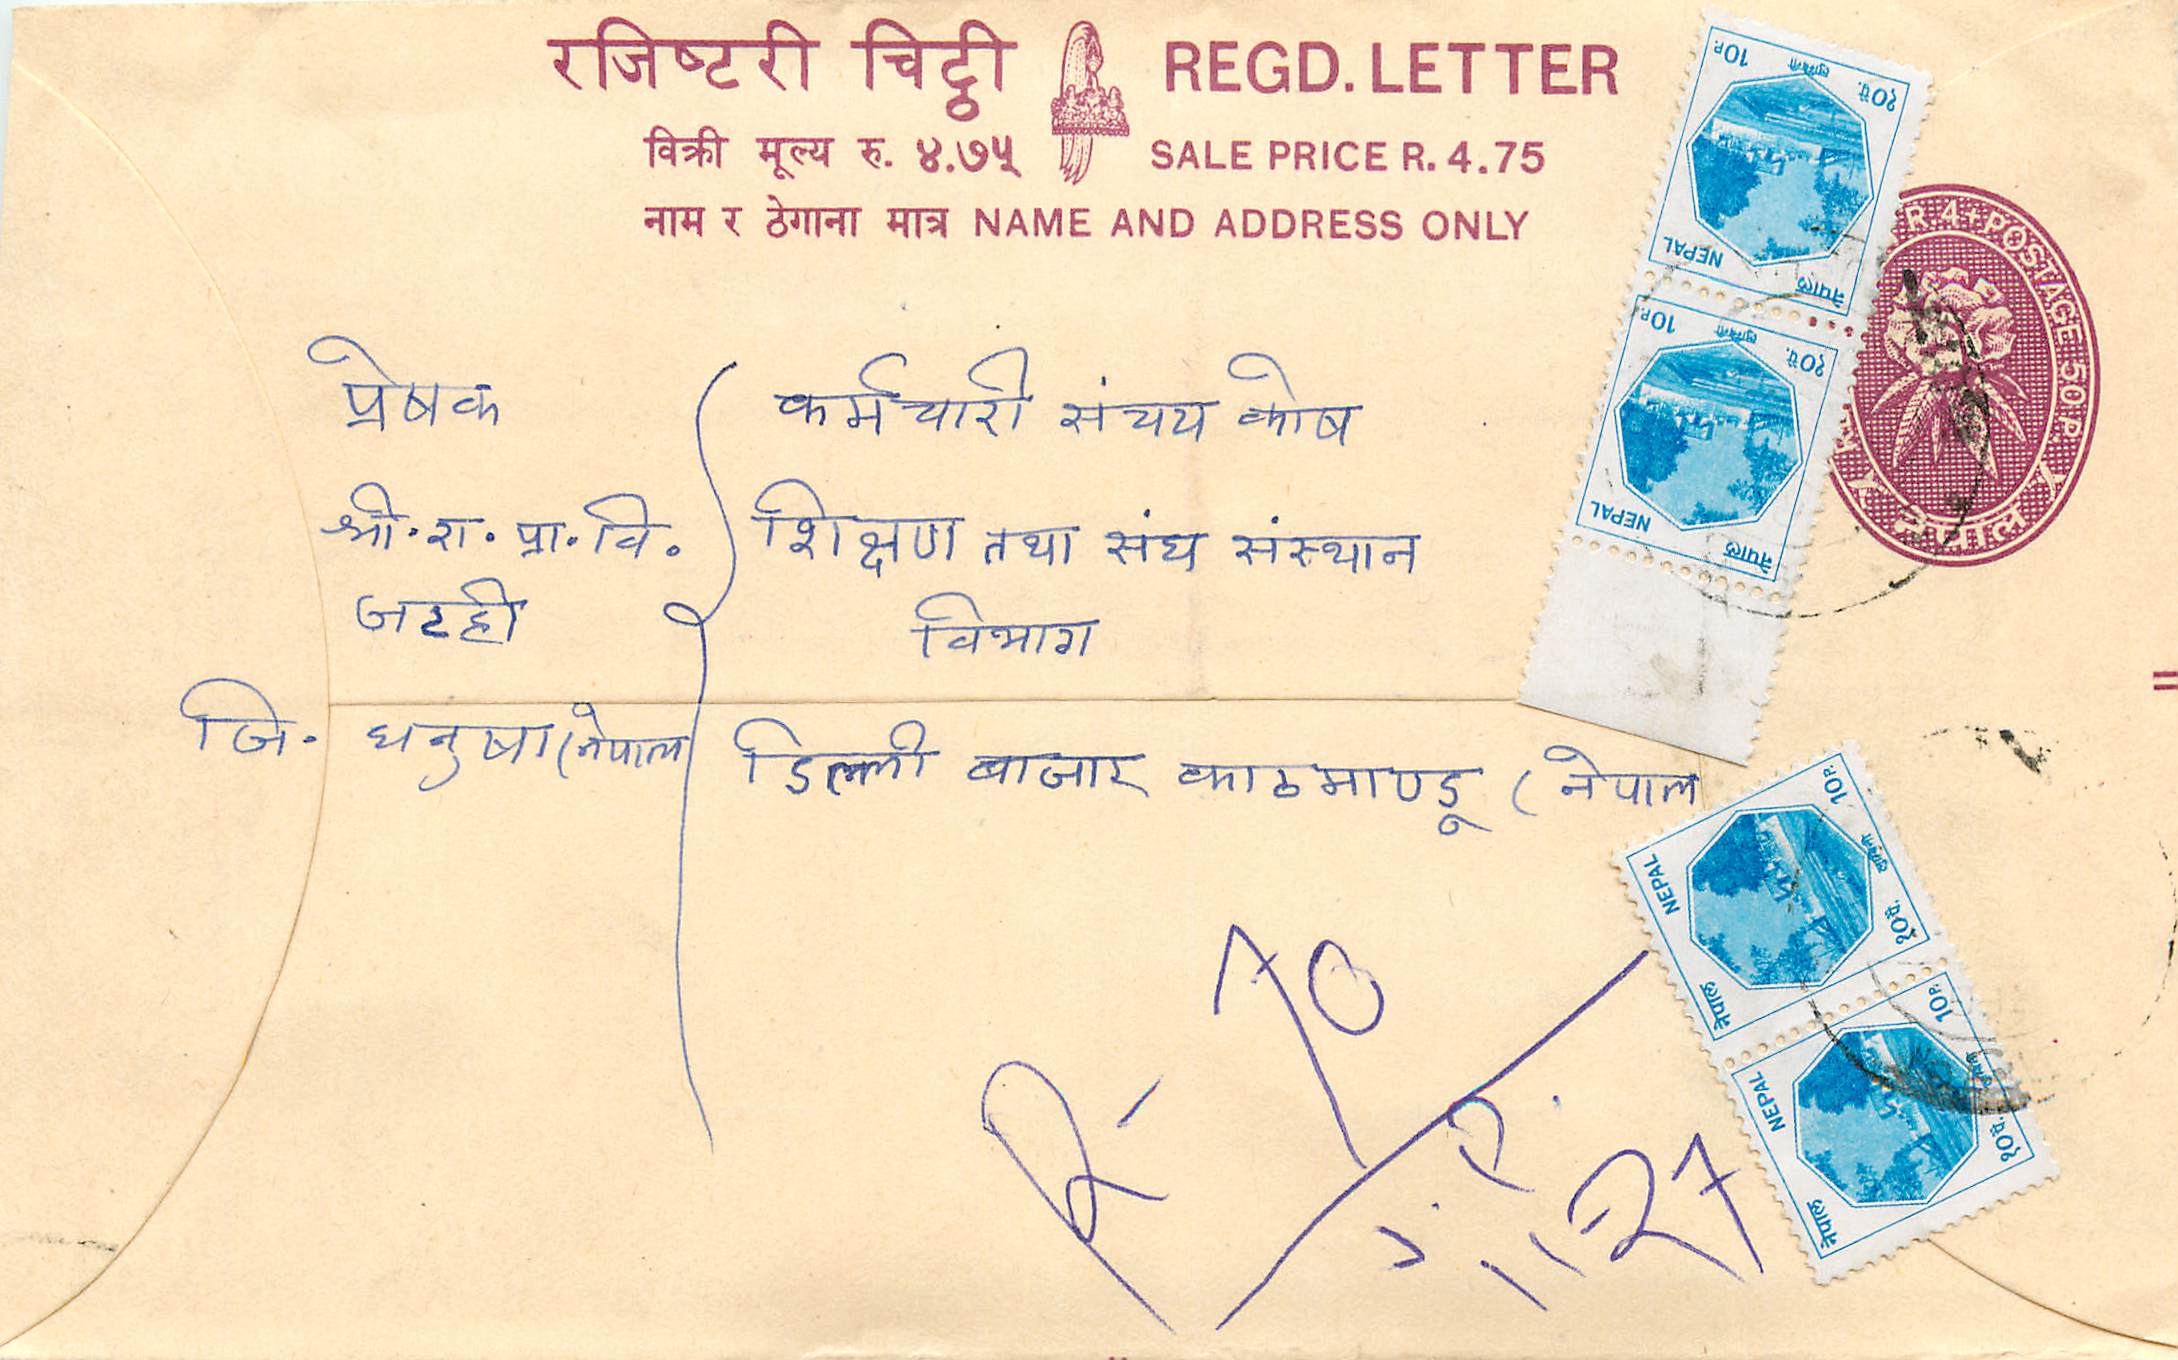 रजिष्टरी चिट्ठी REGD. LETTER
विक्री मूल्य रु. ४.७५ SALE PRICE R. 4.75
नाम र ठेगाना मात्र NAME AND ADDRESS ONLY
R. 4 + POSTAGE 50 P.
नेपाल
10P. लुम्बिनी १०पै.
NEPAL नेपाल
10P. लुम्बिनी १०पै.
NEPAL नेपाल
प्रेषक
श्री. रा. प्रा. वि.
जटही
जि. धनुषा (नेपाल
कर्मचारी संचय कोष
शिक्षण तथा संघ संस्थान
विभाग
डिल्ली बाजार काठमाण्डू (नेपाल
10P. लुम्बिनी १०पै.
NEPAL नेपाल
10P. लुम्बिनी १०पै.
NEPAL नेपाल